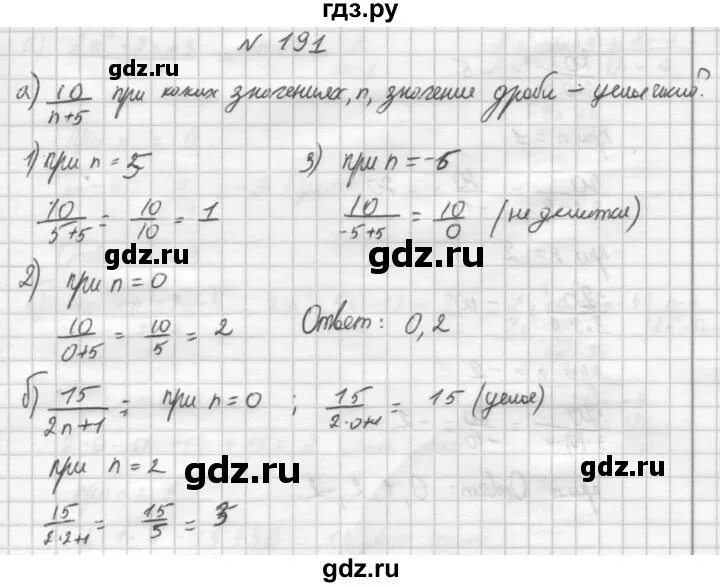 гдз.ру
№ 191
gdz.ru
а) 10/(n+5) при каких значениях, n, значение дроби – целое число?
1) при n = 5
3) при n = -5
10/(5+5) = 10/10 = 1
10/(-5+5) = 10/0 (не делится)
gdz.ru
gdz.ru
2) при n = 0
10/(0+5) = 10/5 = 2
Ответ: 0, 2
gdz.ru
б) 15/(2n+1) = при n = 0 ; 15/(2·0+1) = 15 (целое)
при n = 2
gdz.ru
gdz.ru
15/(2·2+1) = 15/5 = 3
gdz.ru
gdz.ru